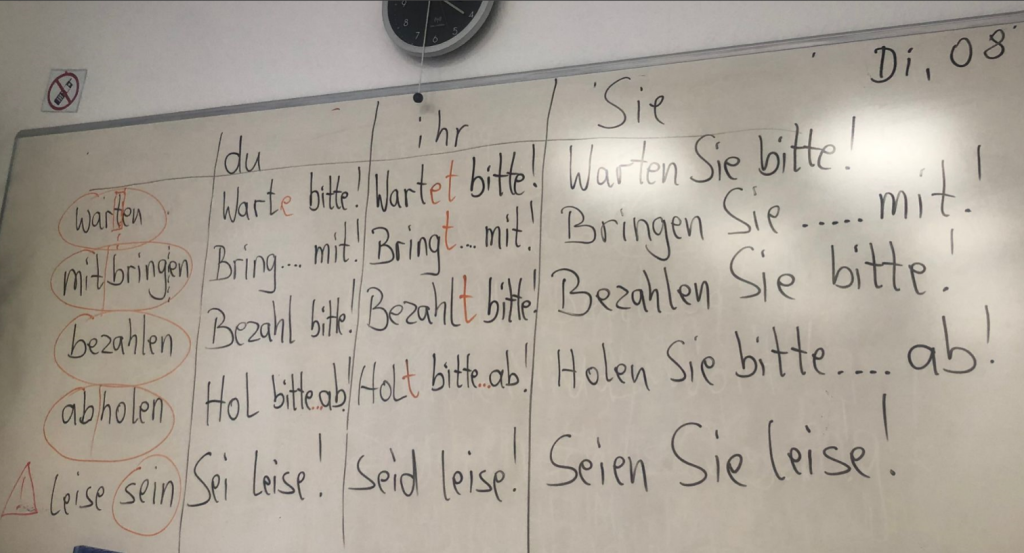 Di, 08
du ihr Sie
warten Warte bitte! Wartet bitte! Warten Sie bitte!
mitbringen Bring.... mit! Bringt... mit! Bringen Sie ..... mit!
bezahlen Bezahl bitte! Bezahlt bitte! Bezahlen Sie bitte!
abholen Hol bitte...ab! Holt bitte...ab! Holen Sie bitte.... ab!
leise sein Sei leise! Seid leise! Seien Sie leise!